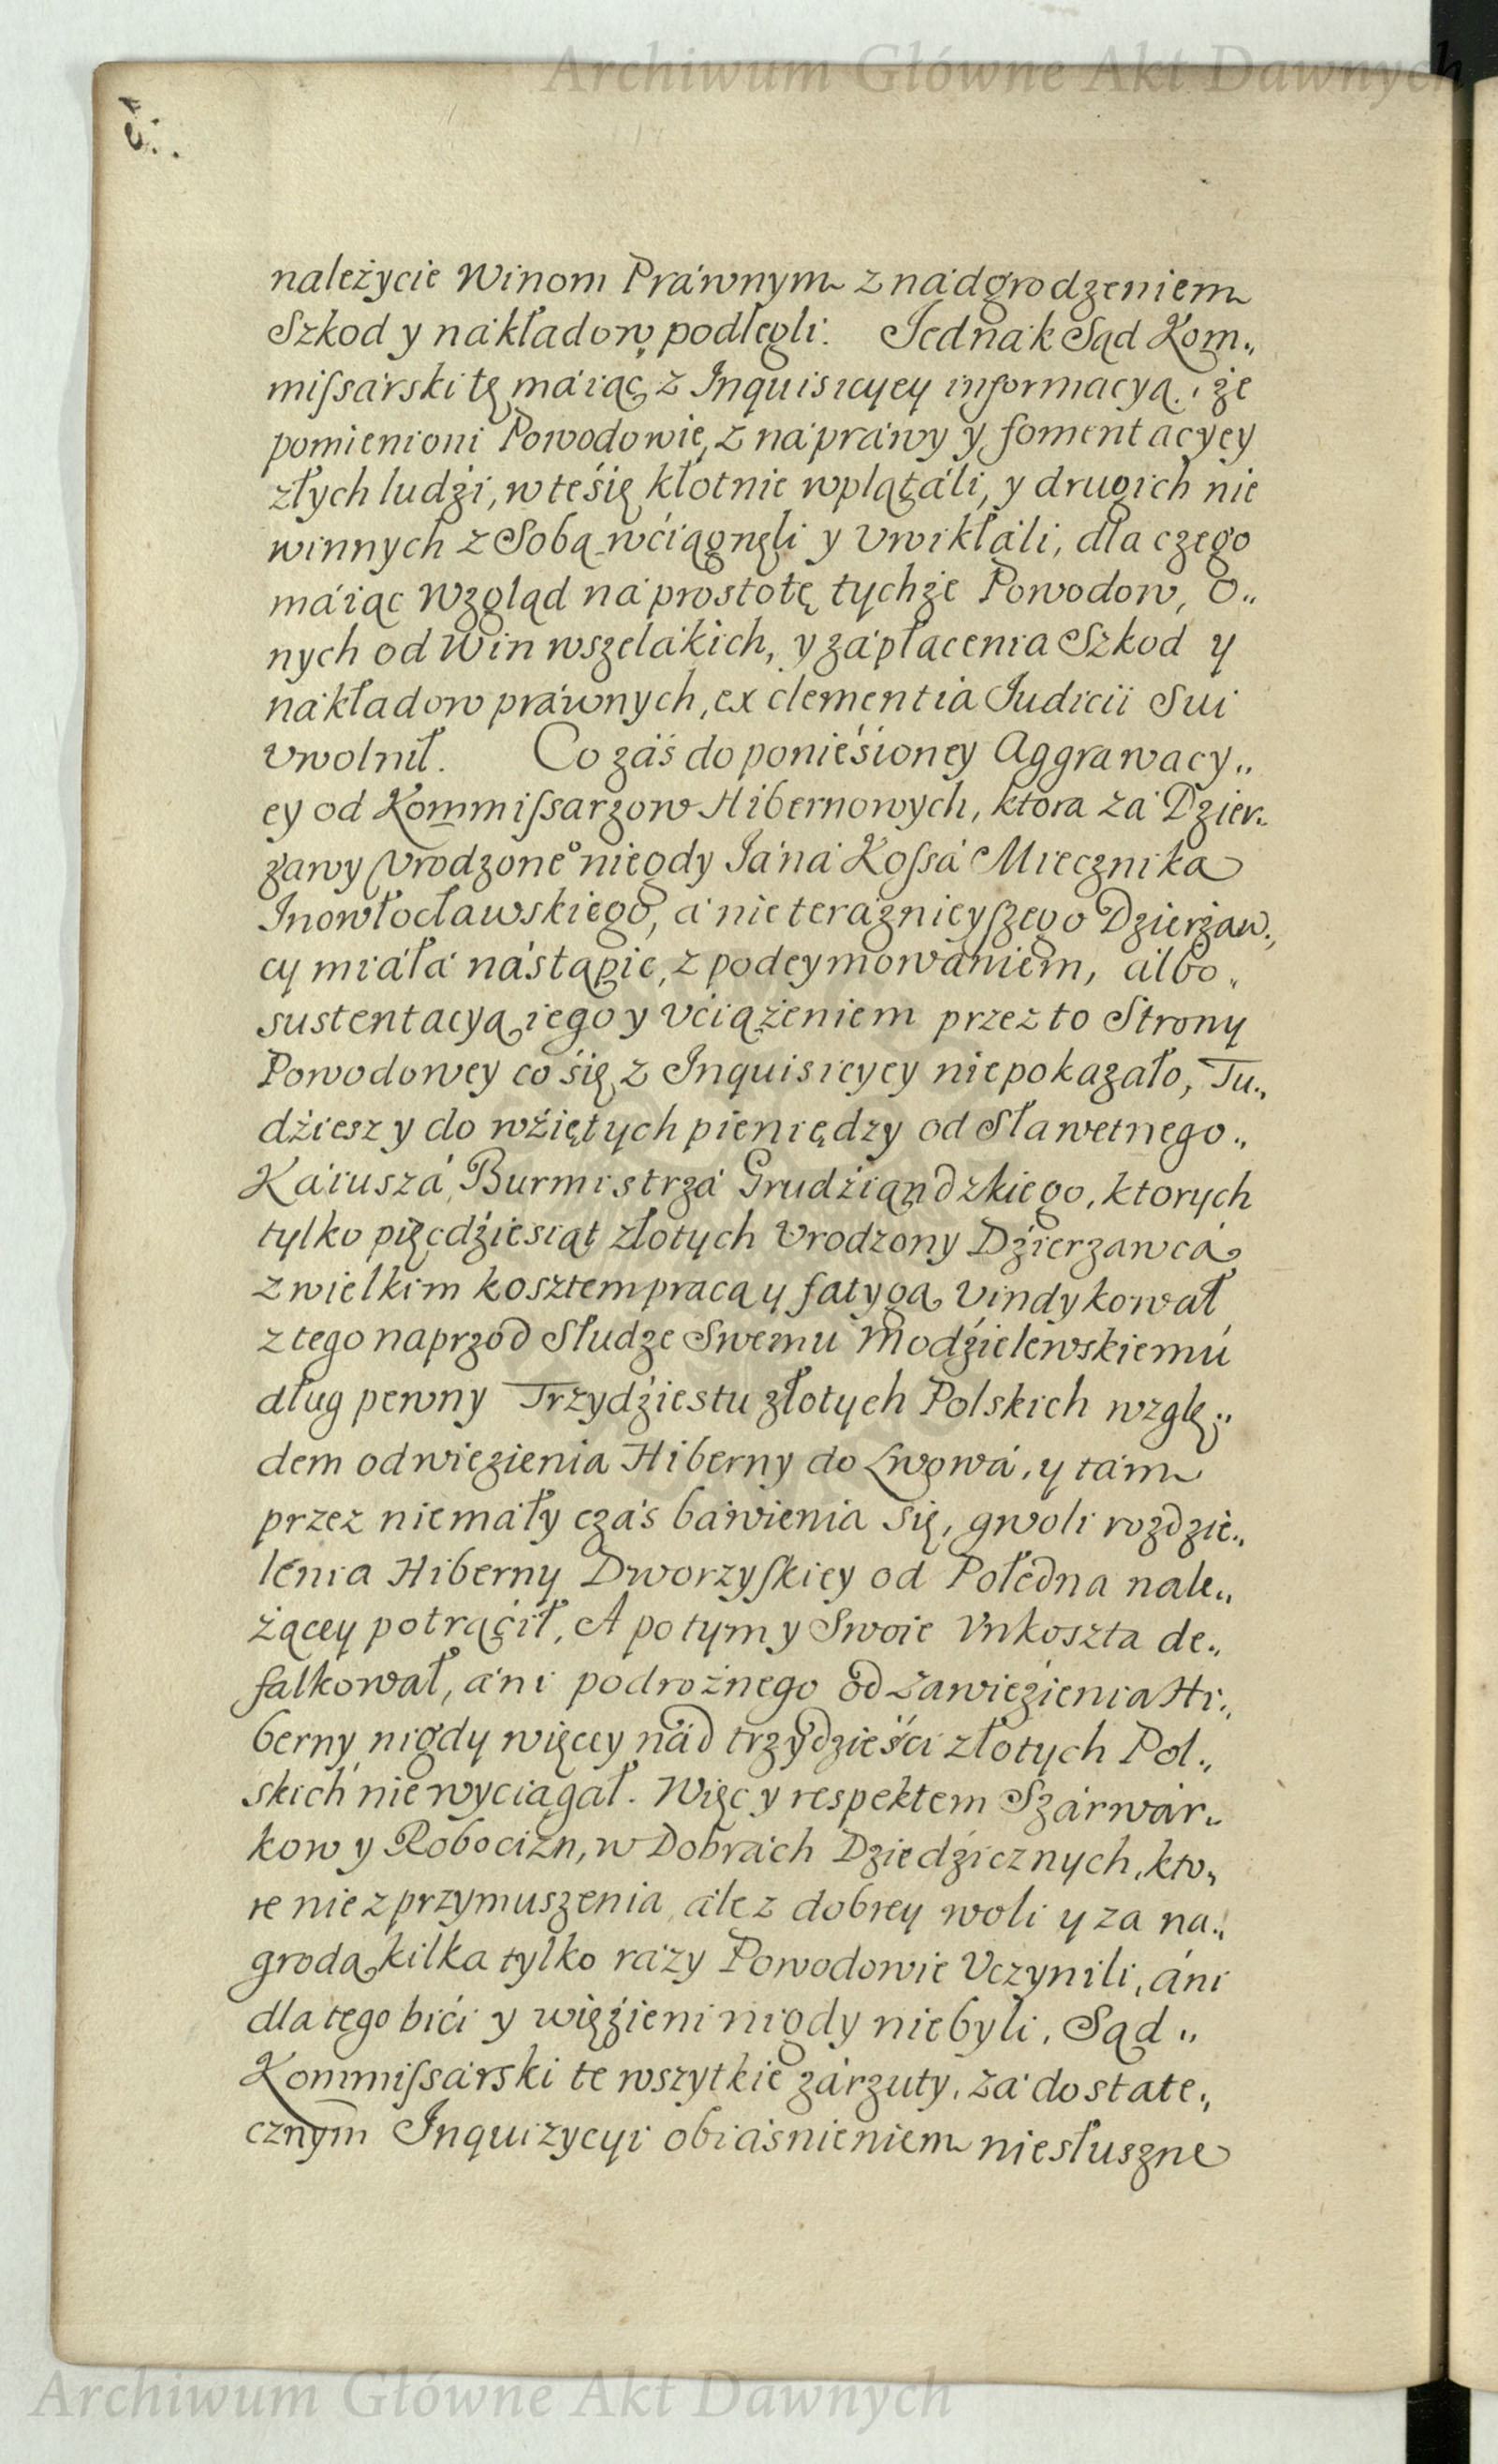 Archiwum Główne Akt Dawnych
należycie Winom Práwnym z nádgrodzeniem
Szkod y nákładow podlegli. Jednák Sąd Kom„
miſsárski tę máiąc z Inquisicyey informacyą, że
pomienioni Powodowie, z nápráwy y fomentacyey
złych ludźi, w te śię kłotnie wplątáli, y drugich nie
winnych z Sobą wćiągnęli y Vwikłáli, dla czego
máiąc Wzgląd ná prostotę tychże Powodow, O„
nych od Win wszelákich, y zápłacenia Szkod y
nákładow práwnych, ex clementia Iudicii Sui
Vwolnił. Co záś do ponieśioney Aggrawacy„
ey od Kommiſsarzow Hibernowych, ktora zá Dzier„
żawy Vrodzone° niegdy Iáná Koſsá Miecznika
Inowłocławskiego, á nie teraznieyſzego Dzierżaw„
cy miáłá nástąpic, z podeymowániem, álbo„
sustentacyą iego y Vciążeniem przez to Strony
Powodowey co śię z Inquisicyey nie pokazało, Tu„
dźiesz y do wźiętych pieniędzy od Sławetnego„
Káiuszá Burmistrzá Grudźiąndzkiego, ktorych
tylko pięcdźiesiąt złotych Vrodzony Dźierzawcá
z wielkim kosztem pracą y fatygą Vindykował
z tego naprzod Słudze Swemu Modźielewskiemu
dług pewny Trzydźiestu złotych Polskich wzglę„
dem odwiezienia Hiberny do Lwowá, y tám
przez niemáły czás báwienia się, gwoli rozdzie„
lenia Hiberny Dworzyſkiey od Połedna nale„
żącey potrąćił, A potym y Swoie Vnkoszta de„
falkował, áni podrożnego od Zawiezienia Hi„
berny nigdy więcey nád trzydzieści złotych Pol„
skich nie wyciagał. Więc y respektem Szárwár„
kow y Robocizn, w Dobrách Dziedźicznych, kto„
re nie z przymuszenia, ále z dobrey woli y za na„
grodą kilka tylko rázy Powodowie Vczynili, áni
dla tego bići y więźieni nigdy nie byli, Sąd„
Kommiſsárski te wszytkie zárzuty, zá dostate„
cznym Inquizycyi obiásnieniem niesłuszne
Archiwum Główne Akt Dawnych